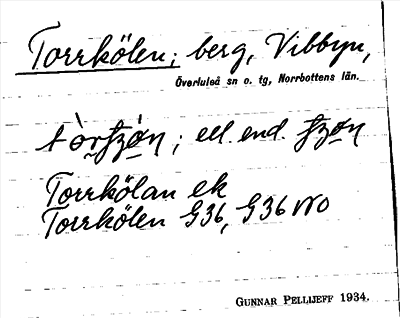 Torrkölen; berg, Vibbyn,
Överluleå sn o. tg, Norrbottens län.
; ell. end.
Torrkölan ek
Torrkölen G36, G36 NO
GUNNAR PELLIJEFF 1934.